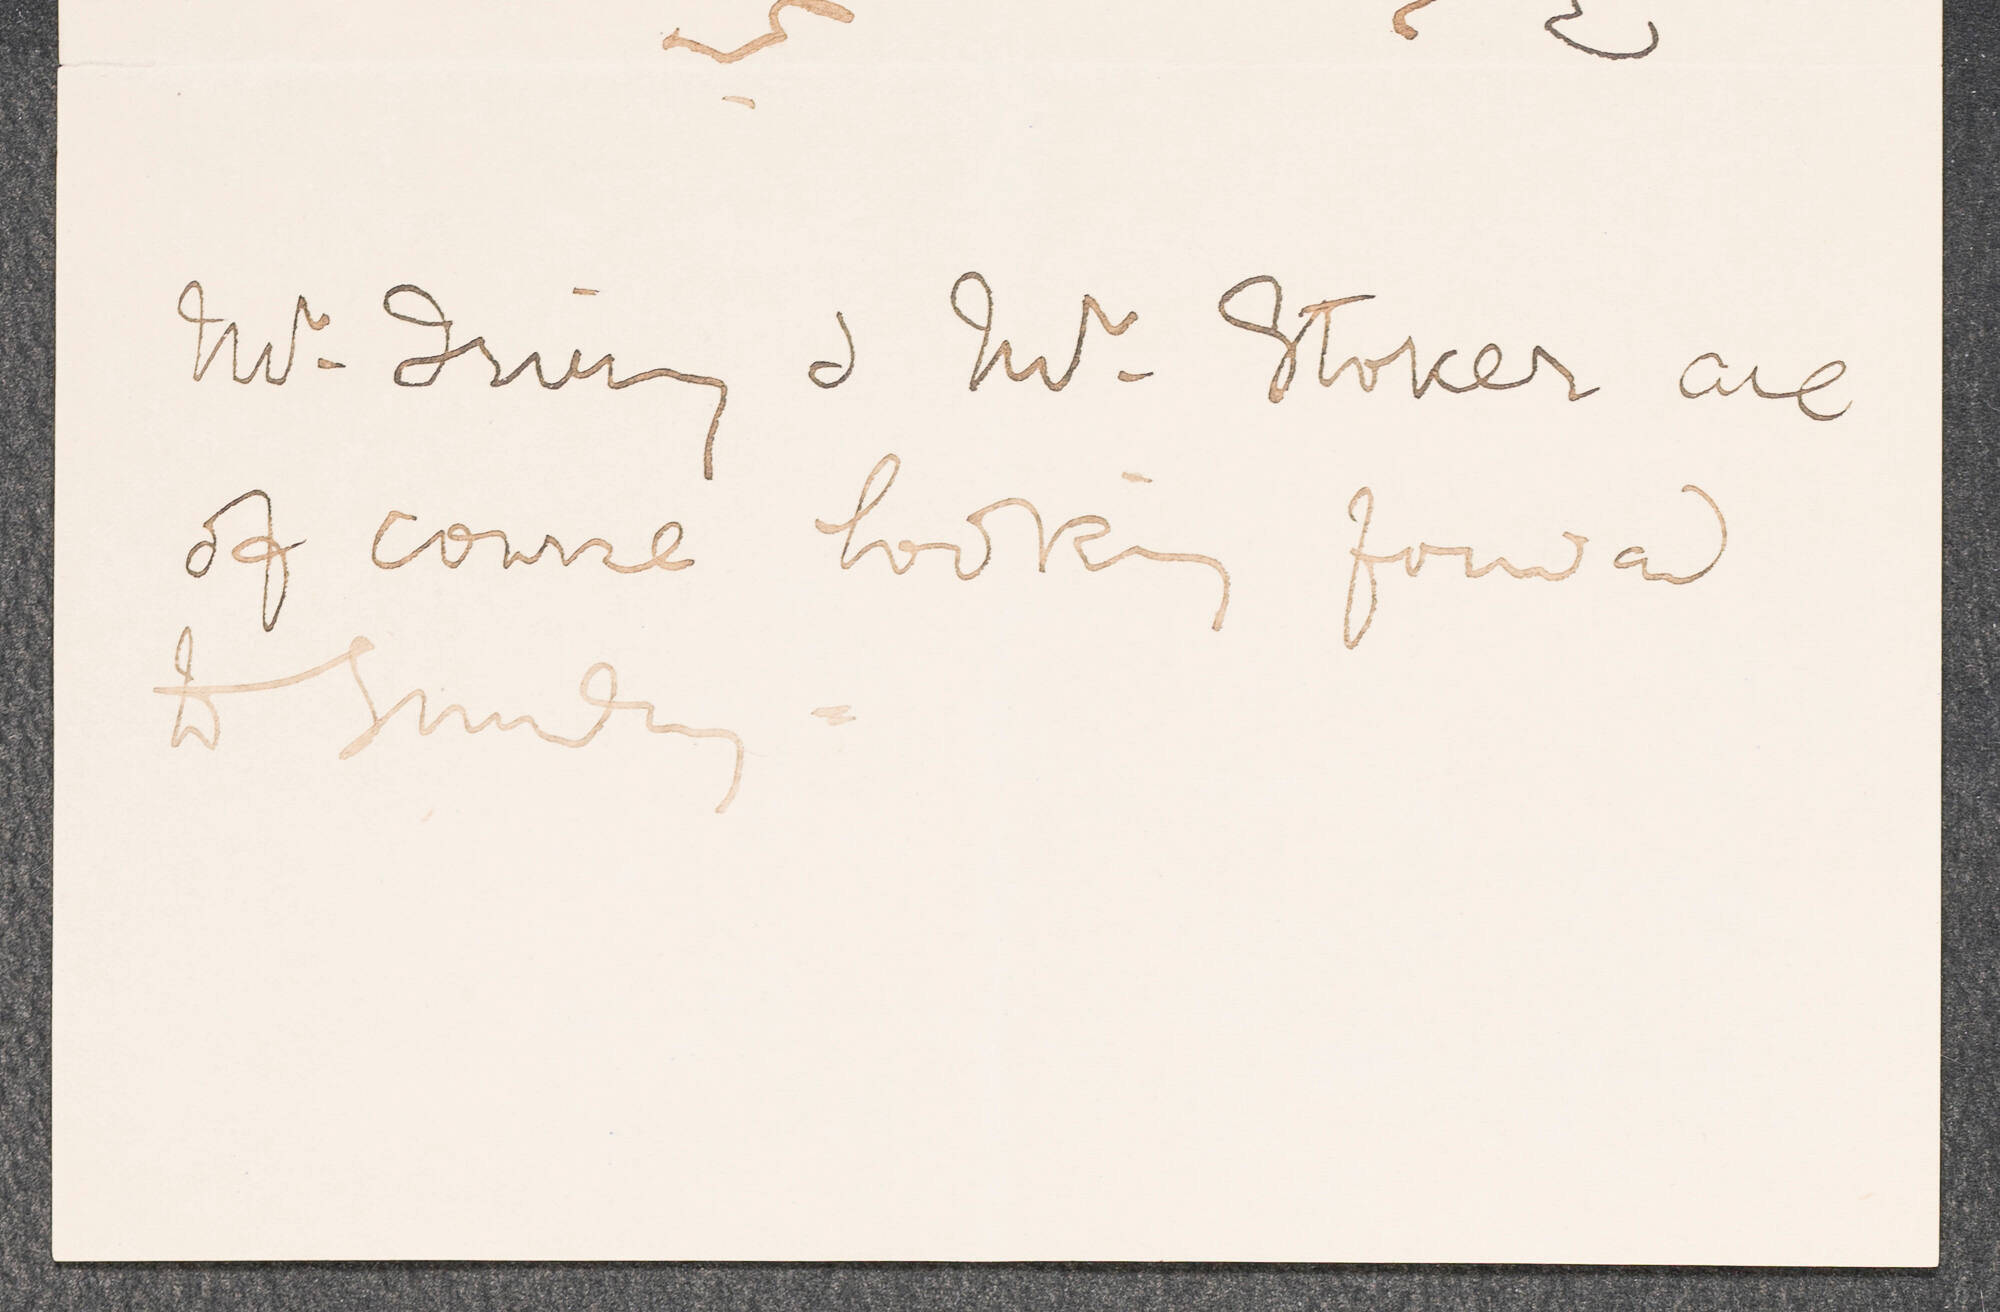 Mr. Irving & Mr. Stoker are
of course looking forward
to Sunday -